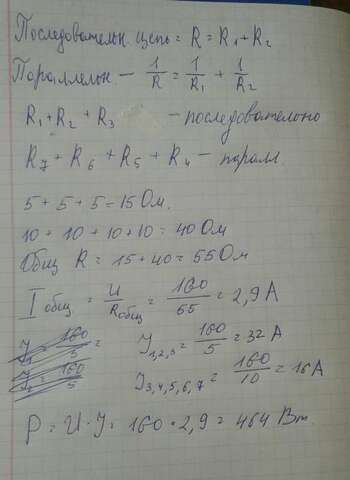 Последовательн. цепь = R = R₁ + R₂
Параллельн. – 1/R = 1/R₁ + 1/R₂
R₁ + R₂ + R₃ – последовательно
R₇ + R₆ + R₅ + R₄ – паралл.
5 + 5 + 5 = 15 Ом.
10 + 10 + 10 + 10 = 40 Ом
Общ R = 15 + 40 = 55 Ом
I общ = U/Rобщ = 160/55 = 2,9 А
J = 160/5 = J₁,₂,₃ = 160/5 = 32 А
J₂ = 160/5 J₃,₄,₅,₆,₇ = 160/10 = 16 А
P = U · J = 160 · 2,9 = 464 Вт.